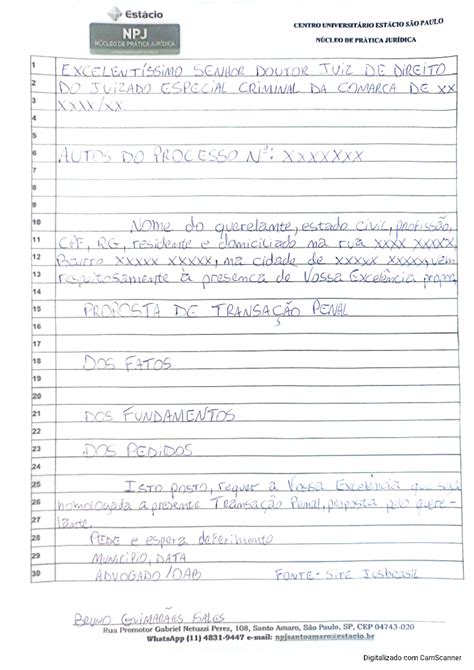 Estácio
NPJ
NÚCLEO DE PRÁTICA JURÍDICA
CENTRO UNIVERSITÁRIO ESTÁCIO SÃO PAULO
NÚCLEO DE PRÁTICA JURÍDICA
1 EXCELENTÍSSIMO SENHOR DOUTOR JUIZ DE DIREITO
2 DO JUIZADO ESPECIAL CRIMINAL DA COMARCA DE XX
3 XXXX/XX
4
5
6 AUTOS DO PROCESSO Nº: XXXXXXX
7
8
9
10 Nome do querelante, estado civil, profissão,
11 CPF, RG, residente e domiciliado na rua xxxx xxxxx,
12 Bairro xxxxx xxxxx, na cidade de xxxxx xxxxx, vem
13 respeitosamente à presença de Vossa Excelência propor
14
15 PROPOSTA DE TRANSAÇÃO PENAL
16
17
18 DOS FATOS
19
20
21 DOS FUNDAMENTOS
22
23 DOS PEDIDOS
24
25 Isto posto, requer a Vossa Excelência que seja
26 homologada a presente Transação Penal, proposta pelo quere-
27 lante.
28 PEDE e espera deferimento
29 MUNICÍPIO, DATA
30 ADVOGADO/OAB FONTE: SITE JUSBRASIL
BRUNO GUIMARÃES SALES
Rua Promotor Gabriel Netuzzi Perez, 108, Santo Amaro, São Paulo, SP, CEP 04743-020
WhatsApp (11) 4831-9447 e-mail: npjsantoamaro@estacio.br
Digitalizado com CamScanner